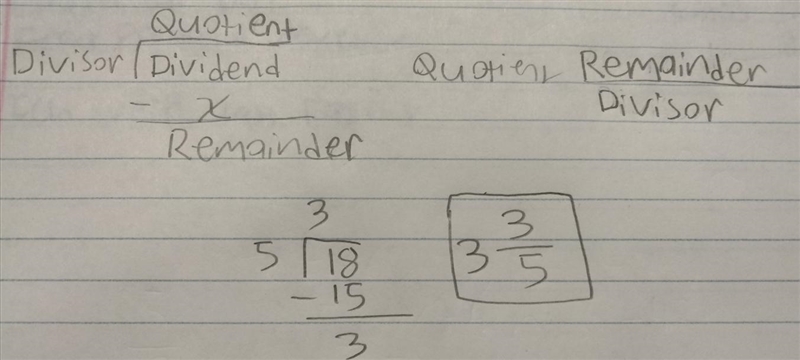 Quotient
Divisor Dividend
- x
Remainder
Quotient Remainder
Divisor
3
5 18
-15
3
3 3/5